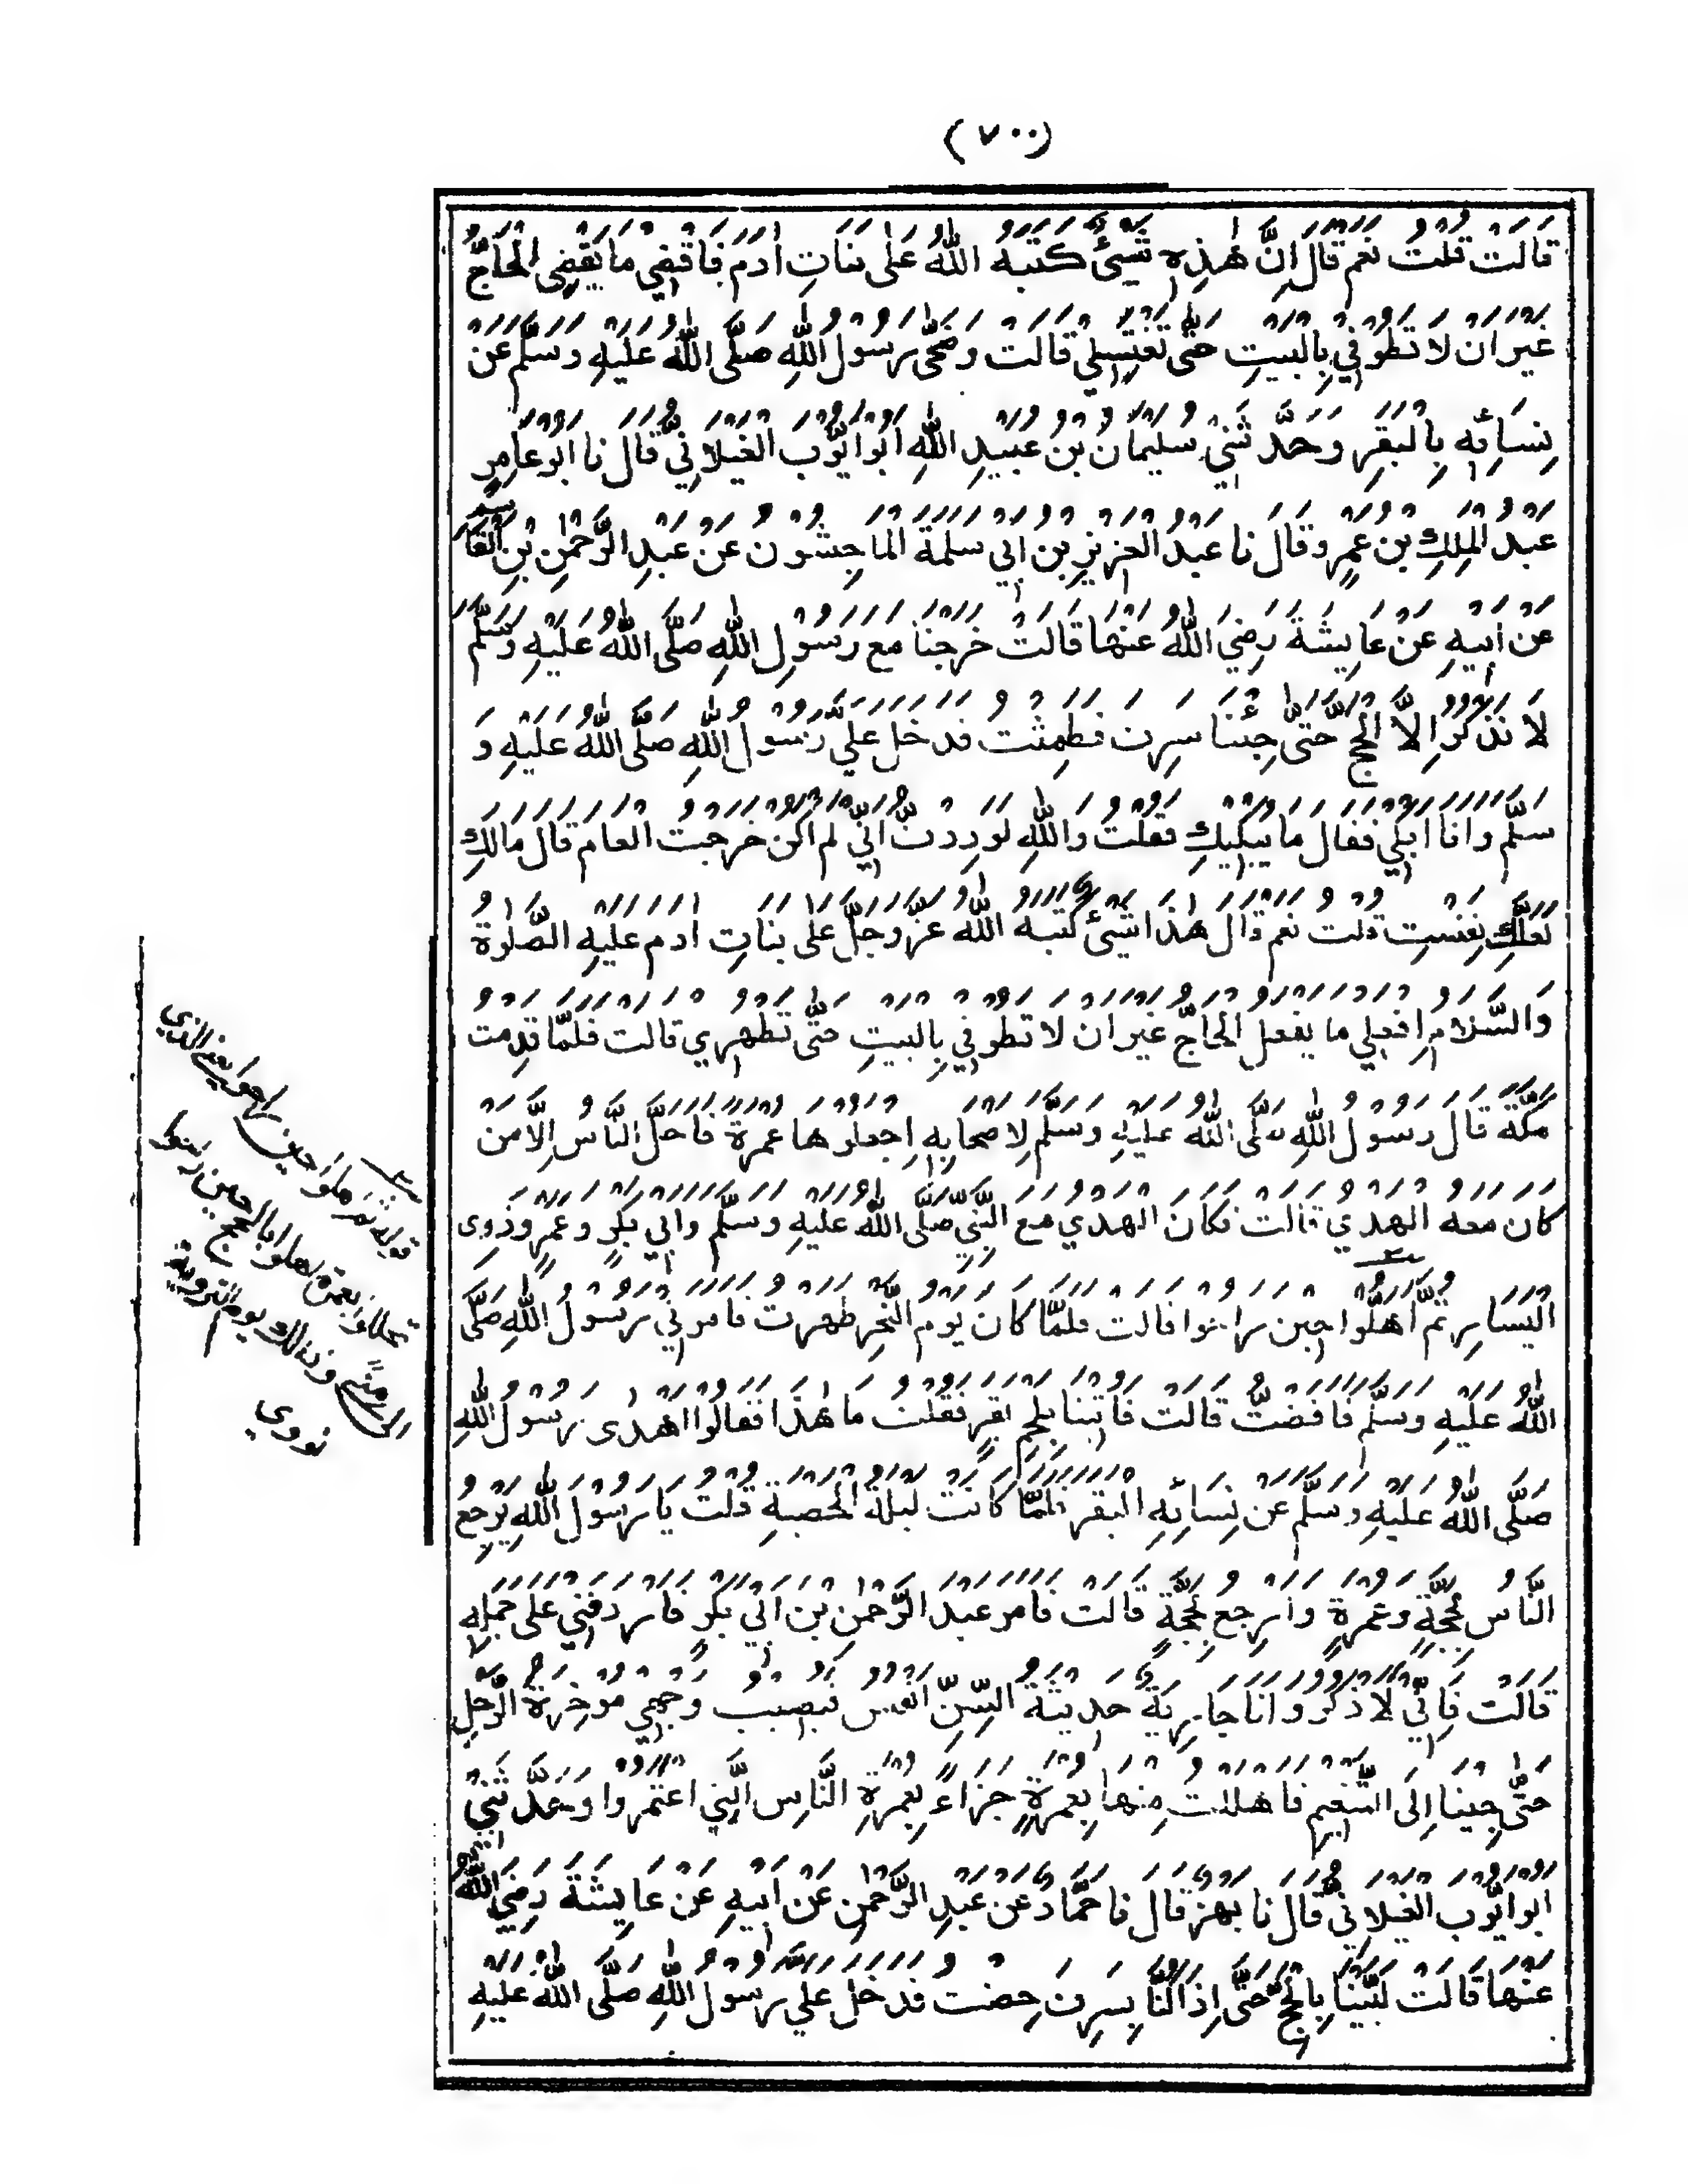 (٧٠٠)
قَالَتْ قُلْتُ نَعَمْ قَالَ اِنَّ هٰذِهِ شَيْئٌ كَتَبَهُ اللّٰهُ عَلٰى بَنَاتِ اٰدَمَ فَاقْضِيْ مَا يَقْضِى الْحَاجُّ
غَيْرَ اَنْ لَا تَطُوْفِيْ بِالْبَيْتِ حَتّٰى تَغْتَسِلِيْ قَالَتْ وَضَحّٰى رَسُوْلُ اللّٰهِ صَلَّى اللّٰهُ عَلَيْهِ وَسَلَّمَ عَنْ
نِسَائِهٖ بِالْبَقَرِ وَحَدَّثَنِيْ سُلَيْمَانُ بْنُ عُبَيْدِ اللّٰهِ اَبُوْ اَيُّوْبَ الْغَيْلَانِيُّ قَالَ نَا اَبُوْ عَامِرٍ
عَبْدُ الْمَلِكِ بْنُ عَمْرٍو قَالَ نَا عَبْدُ الْعَزِيْزِ بْنُ اَبِيْ سَلَمَةَ الْمَاجِشُوْنَ عَنْ عَبْدِ الرَّحْمٰنِ بْنِ الْقَاسِمِ
عَنْ اَبِيْهِ عَنْ عَايِشَةَ رَضِيَ اللّٰهُ عَنْهَا قَالَتْ خَرَجْنَا مَعَ رَسُوْلِ اللّٰهِ صَلَّى اللّٰهُ عَلَيْهِ وَسَلَّمَ
لَا نَذْكُرُ اِلَّا الْحَجَّ حَتّٰى جِئْنَا سَرِفَ فَطَمِثْتُ فَدَخَلَ عَلَيَّ رَسُوْلُ اللّٰهِ صَلَّى اللّٰهُ عَلَيْهِ وَ
سَلَّمَ وَاَنَا اَبْكِيْ فَقَالَ مَا يُبْكِيْكِ فَقُلْتُ وَاللّٰهِ لَوَدِدْتُ اَنِّيْ لَمْ اَكُنْ خَرَجْتُ الْعَامَ قَالَ مَا لَكِ
لَعَلَّكِ نَفِسْتِ قُلْتُ نَعَمْ قَالَ هٰذَا شَيْئٌ كَتَبَهُ اللّٰهُ عَزَّ وَجَلَّ عَلٰى بَنَاتِ اٰدَمَ عَلَيْهِ الصَّلٰوةُ
وَالسَّلَامُ اِفْعَلِيْ مَا يَفْعَلُ الْحَاجُّ غَيْرَ اَنْ لَا تَطُوْفِيْ بِالْبَيْتِ حَتّٰى تَطْهُرِيْ قَالَتْ فَلَمَّا قَدِمْتُ
مَكَّةَ قَالَ رَسُوْلُ اللّٰهِ صَلَّى اللّٰهُ عَلَيْهِ وَسَلَّمَ لِاَصْحَابِهٖ اِجْعَلُوْهَا عُمْرَةً فَاَحَلَّ النَّاسُ اِلَّا مَنْ
كَانَ مَعَهُ الْهَدْيُ قَالَتْ فَكَانَ الْهَدْيُ مَعَ النَّبِيِّ صَلَّى اللّٰهُ عَلَيْهِ وَسَلَّمَ وَاَبِيْ بَكْرٍ وَعُمَرَ وَذَوِى
الْيَسَارِ ثُمَّ اَهَلُّوْا حِيْنَ رَاحُوْا قَالَتْ فَلَمَّا كَانَ يَوْمُ النَّحْرِ طَهُرْتُ فَاَمَرَنِيْ رَسُوْلُ اللّٰهِ صَلَّى
اللّٰهُ عَلَيْهِ وَسَلَّمَ فَاَفَضْتُ قَالَتْ فَاُتِيْنَا بِلَحْمِ بَقَرٍ فَقُلْتُ مَا هٰذَا فَقَالُوْا اَهْدٰى رَسُوْلُ اللّٰهِ
صَلَّى اللّٰهُ عَلَيْهِ وَسَلَّمَ عَنْ نِسَائِهِ الْبَقَرَ فَلَمَّا كَانَتْ لَيْلَةُ الْحَصْبَةِ قُلْتُ يَا رَسُوْلَ اللّٰهِ يَرْجِعُ
النَّاسُ بِحَجَّةٍ وَعُمْرَةٍ وَاَرْجِعُ بِحَجَّةٍ قَالَتْ فَاَمَرَ عَبْدَ الرَّحْمٰنِ بْنَ اَبِيْ بَكْرٍ فَاَرْدَفَنِيْ عَلٰى جَمَلِهٖ
قَالَتْ فَاِنِّيْ لَاَذْكُرُ وَاَنَا جَارِيَةٌ حَدِيْثَةُ السِّنِّ اَنْعَسُ فَيُصِيْبُ وَجْهِيْ مُؤْخِرَةَ الرَّحْلِ
حَتّٰى جِيْنَا اِلَى التَّنْعِيْمِ فَاَهْلَلْتُ مِنْهَا بِعُمْرَةٍ جَزَاءً بِعُمْرَةِ النَّاسِ الَّتِيْ اعْتَمَرُوْا وَحَدَّثَنِيْ
اَبُوْ اَيُّوْبَ الْغَيْلَانِيُّ قَالَ نَا بَهْزٌ قَالَ نَا حَمَّادٌ عَنْ عَبْدِ الرَّحْمٰنِ عَنْ اَبِيْهِ عَنْ عَايِشَةَ رَضِيَ اللّٰهُ
عَنْهَا قَالَتْ لَبَّيْنَا بِالْحَجِّ حَتّٰى اِذَا كُنَّا بِسَرِفَ حِضْتُ فَدَخَلَ عَلَيَّ رَسُوْلُ اللّٰهِ صَلَّى اللّٰهُ عَلَيْهِ
قوله ثم اهلوا حين راحوا يعني الذين
تحللوا بعمرة اهلوا بالحج حين
الى منًى وذلك يوم التروية
نووي